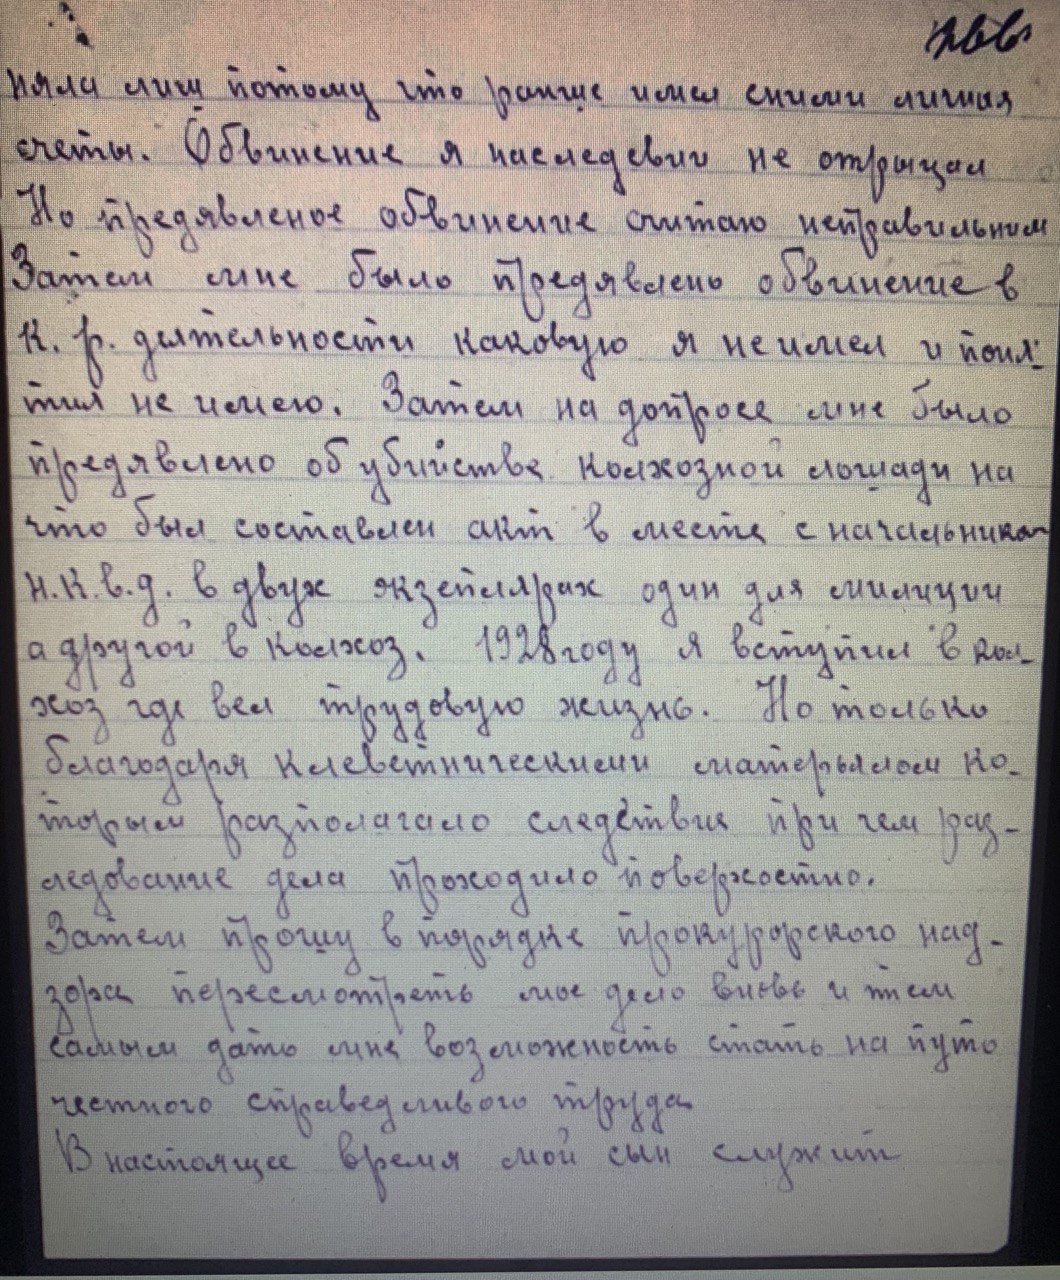 няли лиш потому что ранще имел сними личныя
счеты. Обвинение я наследевии не отрыцал
Но предявленое обвинение считаю неправильним
Затем мне было предявлено обвинение в
к. р. деятельности каковую я не имел и поня-
тия не имею. Затем на допросе мне было
предявлено об убийстве колхозной лошади на
что был составлен акт в месте с начальником
н.к.в.д. в двух экземплярах один для милиции
а другой в колхоз. 1928 году я вступил в кол-
хоз где вел трудовую жизнь. Но только
благодаря клеветническими матерьялом ко-
торым разполагало следствия при чем раз-
ледование дела проходило поверхостно.
Затем прошу в порядке прокурорского над-
зора пересмотреть мое дело вновь и тем
самым дать мне возможность стать на путь
честного справедливого труда
В настоящее время мой сын служит